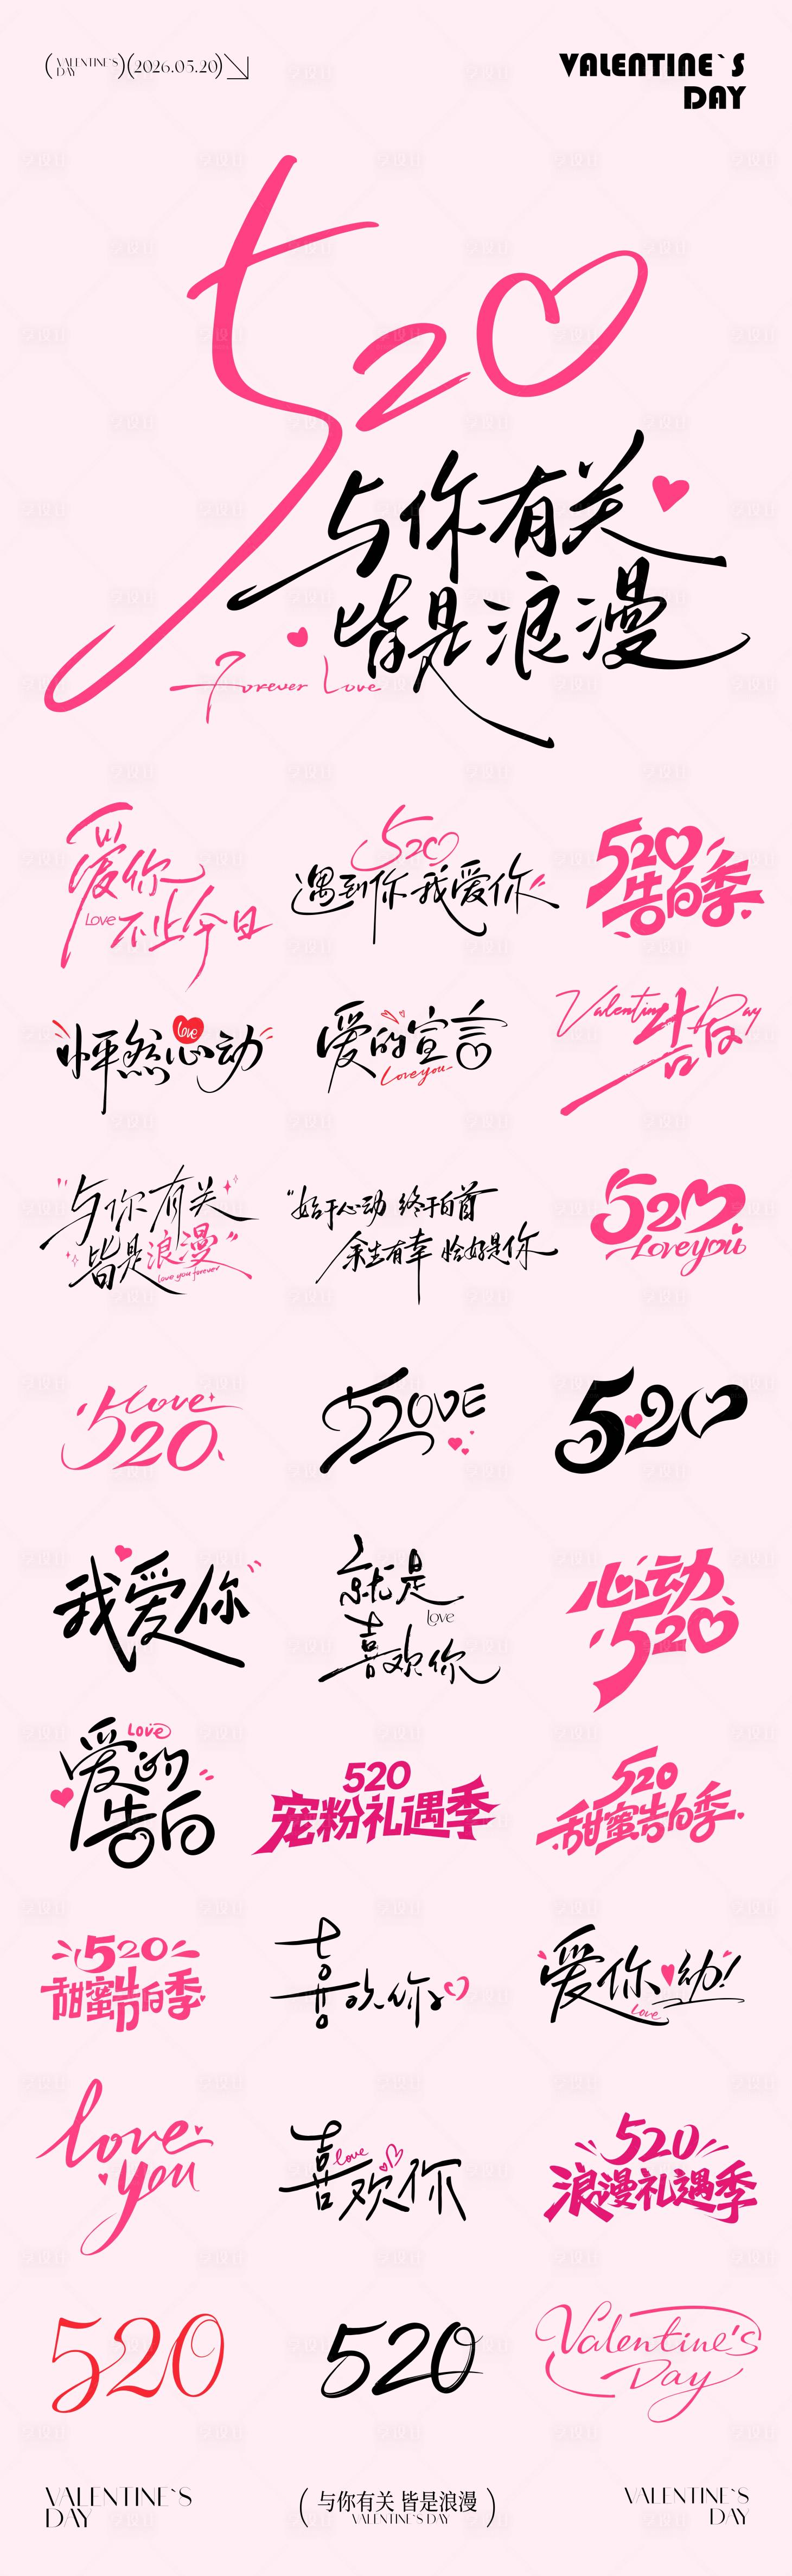 (VALENTINE`S DAY)(2026.05.20)
VALENTINE`S
DAY
520
与你有关
皆是浪漫
Forever Love
爱你
Love 不止今日
520
遇到你 我爱你
520
告白季
怦然心动
love
爱的宣言
Loveyou
Valentine Day
告白
与你有关
皆是浪漫
love you forever
“始于心动 终于白首
余生有幸 恰好是你
520
Loveyou
love
520
520VE
520
我爱你
就是
Love
喜欢你
心动
520
Love
爱的
告白
520
宠粉礼遇季
520
甜蜜告白季
520
甜蜜告白季
喜欢你
爱你 动!
Love
love
you
喜欢你
love
520
浪漫礼遇季
520
520
Valentine's
Day
VALENTINE`S
DAY
(与你有关 皆是浪漫)
VALENTINE`S DAY
VALENTINE`S
DAY